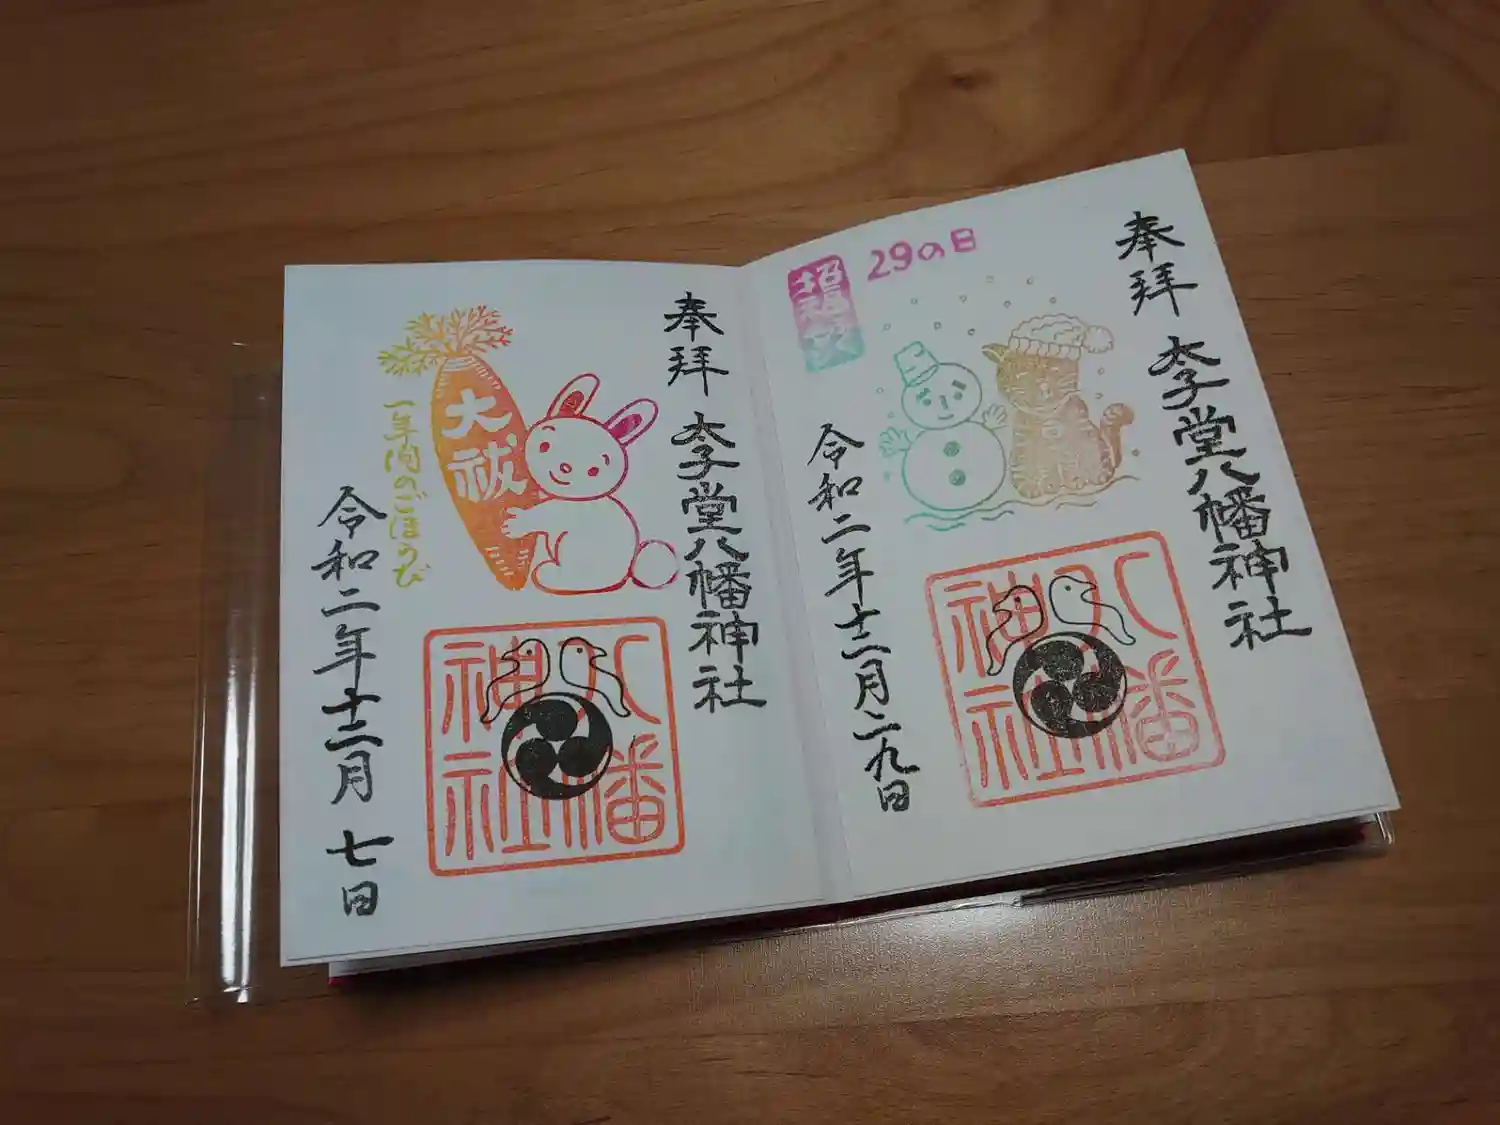 奉拝
太子堂八幡神社
29の日
招福猫
令和二年十二月二九日
八幡神社
奉拝
太子堂八幡神社
大祓
一年間のごほうび
令和二年十二月七日
八幡神社